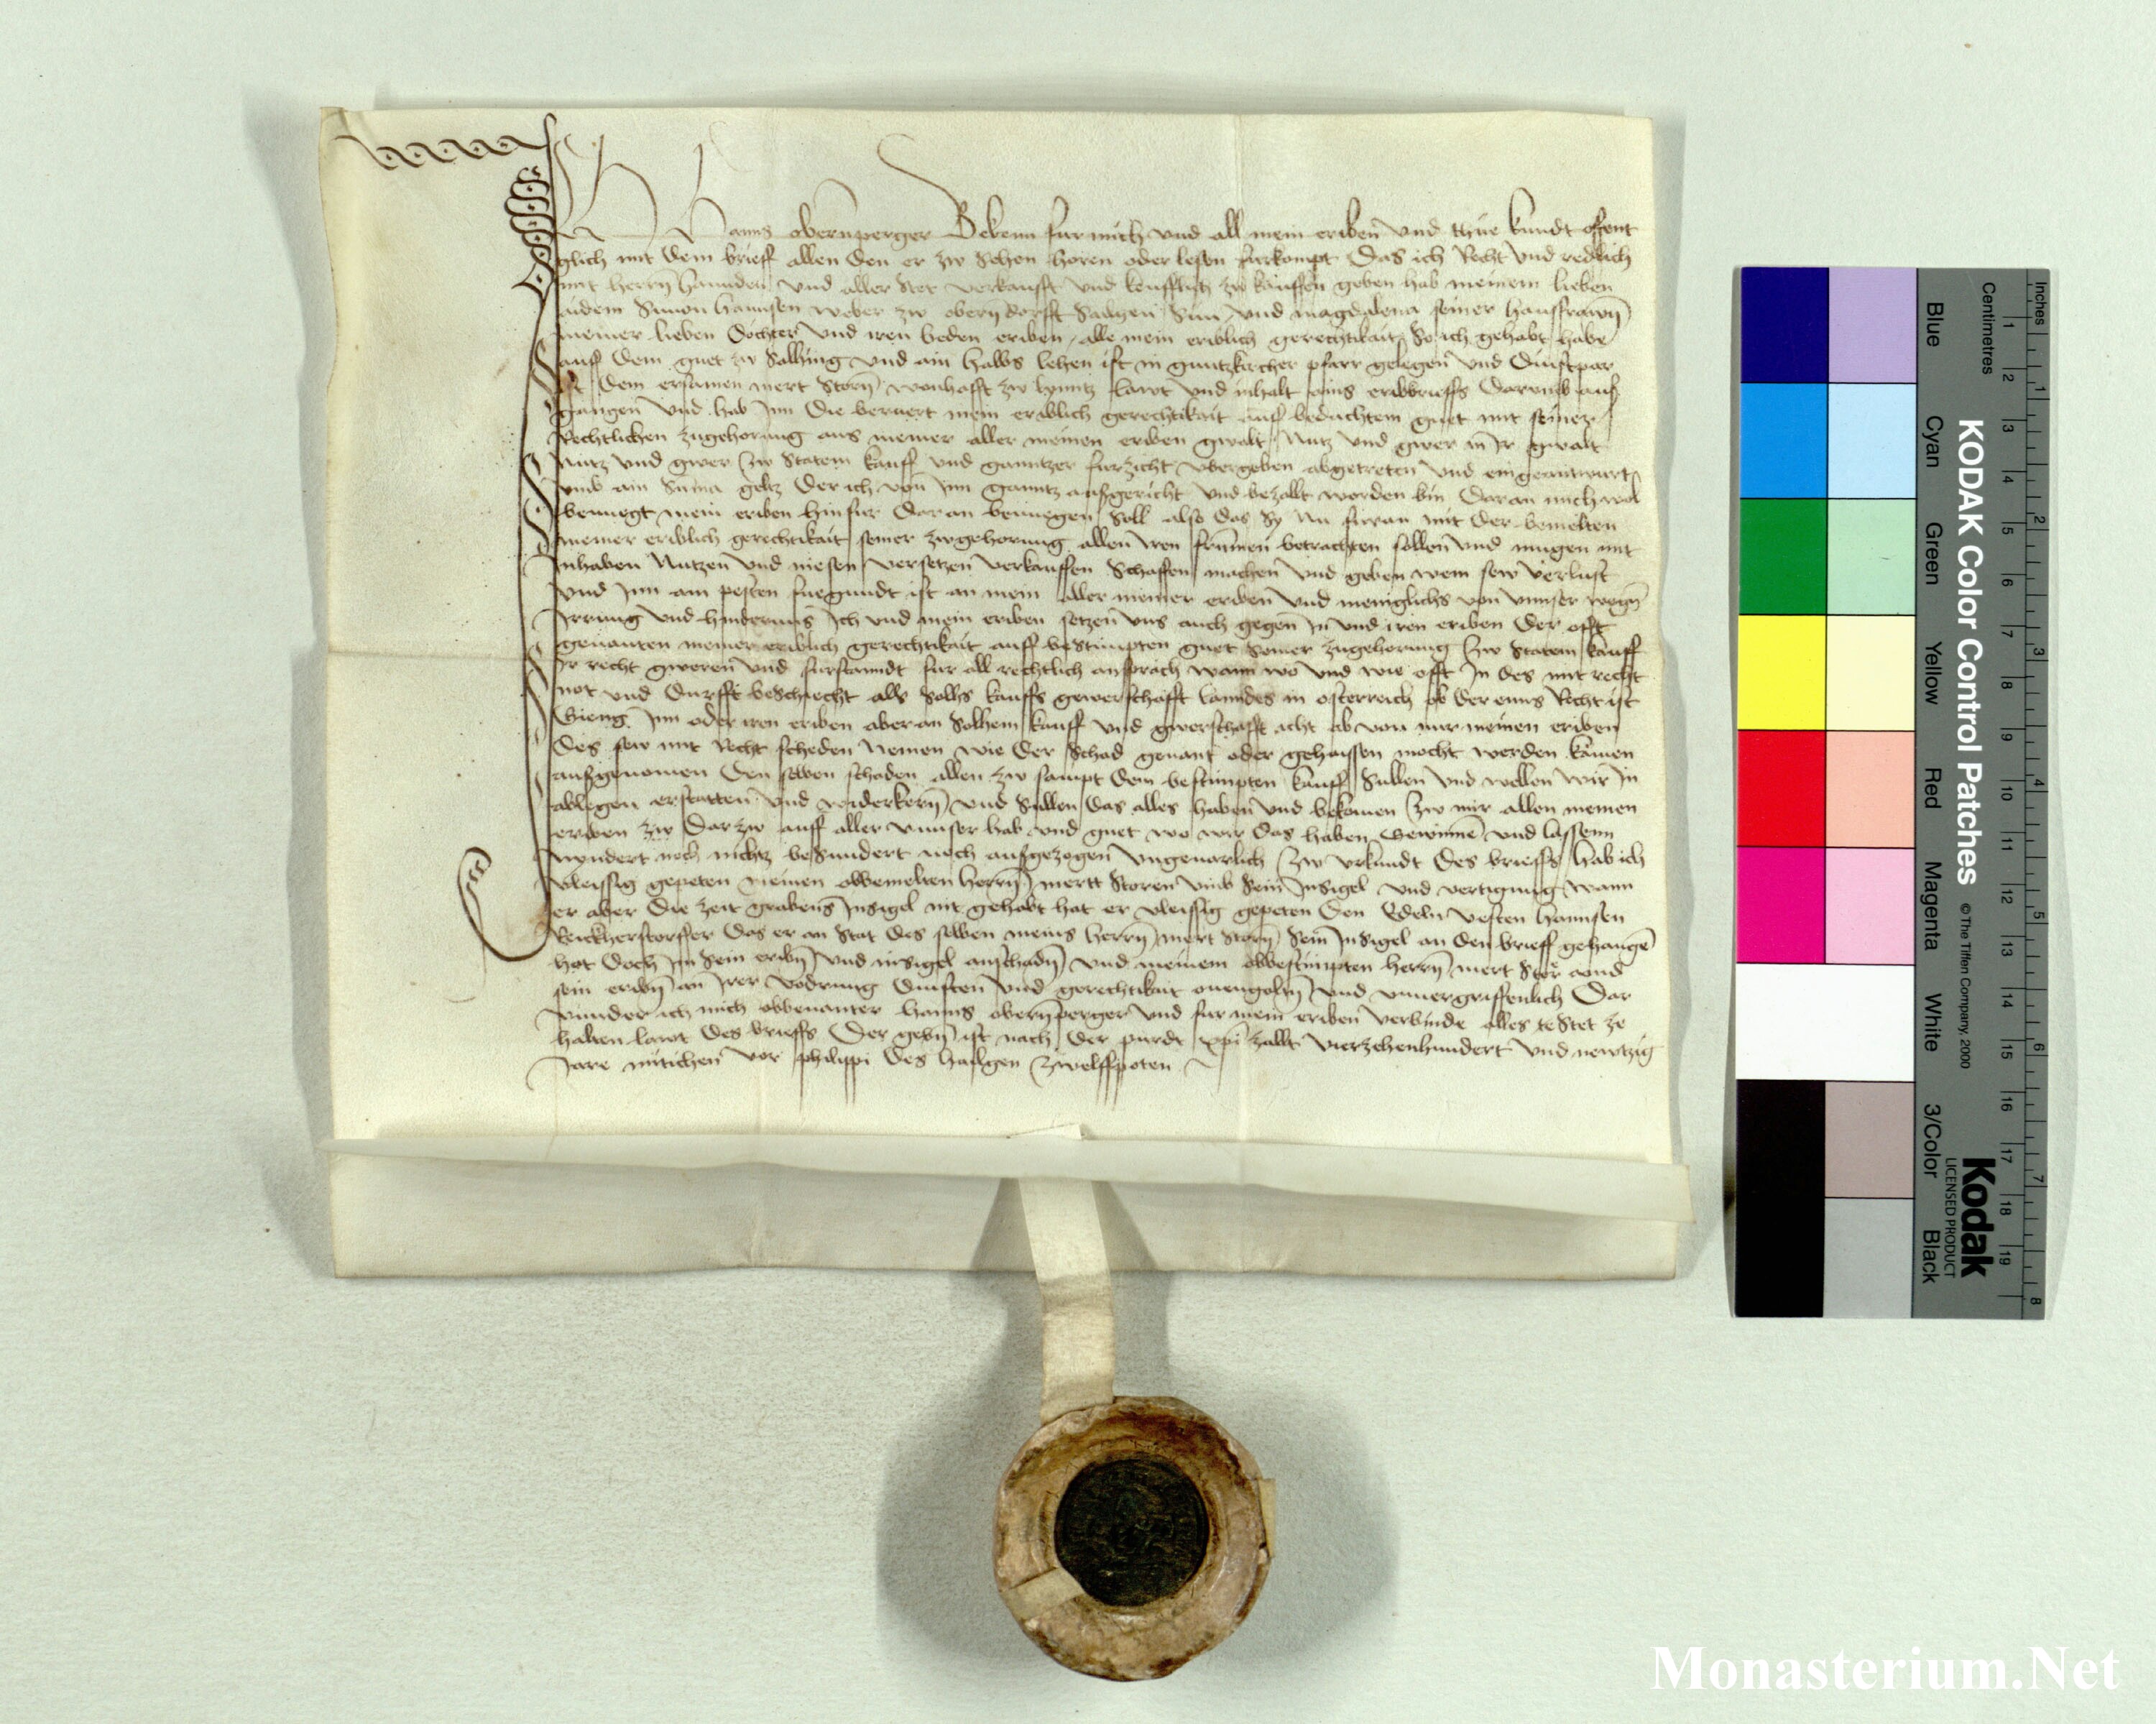 Hanns obernperger Bekenn fur mich und all mein eriben und thue kundt offent
glich mit dem brieff allen den er zw sehen horen oder lesen furkompt Das ich Recht und redlich
mit herrn hannden und aller stet verkaufft und keufflich zw kauffen geben hab meinem lieben
aidem Simon hannsen weber zw obern dorff Sun und magdalena seiner hausfrawn
meiner lieben dochter und iren beden eriben alle mein eriblich gerechtikait So ich gehabt habe
auff dem guet zw Salhing und ain halbs lehen ist in guntzkircher pfarr gelegen und dinstpar
ist dem ersamen mert storn wonhafft zw lynntz lawt und inhalt ains eribbrieffs darumb aus
gangen und hab Inn die beruert mein eriblich gerechtikait auff bedachtem guet mit seiner
Rechtlichen zugehorung aus meiner aller meinen eriben gwalt Nutz und gwer in Ir gwalt
Nutz und gwer zw statem kauff und ganntzer furzicht ubergeben abgetreten und eingeantwurt
umb ain Suma geltz Der ich von Inn ganntz aufgericht und bezallt worden bin Daran mich wol
benuegt mein eriben hinfur daran benuegen soll also das Sy nu furan mit der bemelten
meiner eriblich gerechtikait seiner zwgehorung allen iren frumen betrachten sollen und mugen mit
Inhaben Nutzen und niesen versetzen verkauffen Schaffen machen und geben wem sew verlust
und Inn am pesten fuegundt ist an mein aller meiner eriben und meniglichs von unnser wegn
Irrung und hindernus Ich und mein eriben setzen uns auch gegen In und iren eriben der offt
genanten meiner eriblich gerechtikait auff bestimpten guet seiner zugehorung zw statem kauff
Ir recht gweren und furstanndt fur all rechtlich ansprach wann wo und wie offt In des mit recht
not und durfft beschiecht alls solhs kauffs gewerschafft lanndes in osterreich ob der enns Recht ist
Gieng Inn oder iren eriben aber an solhem kauff und gwerschafft icht ab von mir meinen eriben
Des sew mit Recht scheden Nemen wie der schad genant oder gehaissen mocht werden kainen
ausgenomen Den selben schaden allen zw sampt dem bestimpten kauff sullen und wellen wir In
ablegen erstatten und widerkern und sullen das alles haben und bekomen zw mir allen meinen
eriben zw dar zw auff aller unnser hab und guet wo wir das haben Gewinne und lassenn
nichtz besundert noch ausgezogen ungeuarlich zw urkundt des brieffs hab ich
vleissig gepeten meinen obbemelten herrn mertt storen umb sein Insigel und vertigung wann
er aber die zeit grabens Insigel nit gehabt hat er vleissig gepeten den Edeln vesten hannsen
Reickherstorffer das er an stat des selben meins herrn mert storn sein Insigel an den brieff gehange
hat doch Im sein eribn und insigel anschadn und meinem obbestimpten herrn mert stor und
sein eribn an irer vodrung dinsten und gerechtikait onengoltn und unuergriffenlich Dar
wunder ich mich obbenanter hanns obernperger und fur mein eriben verbinde alles stet ze
halten lawt des brieffs Der gebn ist nach der purdt xpi zallt vierzehenhundert und newtzig
Jare mitichen vor philippi des hailgen zwelffpoten
KODAK Color Control Patches © The Tiffen Company, 2000
Kodak LICENSED PRODUCT
Inches 1 2 3 4 5 6 7 8
Centimetres 1 2 3 4 5 6 7 8 9 10 11 12 13 14 15 16 17 18 19
Blue Cyan Green Yellow Red Magenta White 3/Color Black
Monasterium.Net